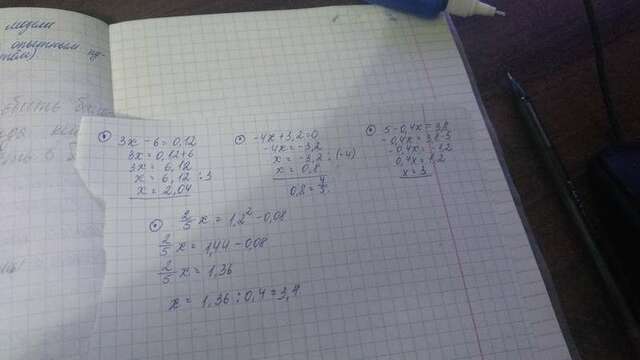 модели
опытным
3x - 6 = 0,12
3x = 0,12+6
3x = 6,12
x = 6,12 : 3
x = 2,04
-4x+3,2=0
-4x=-3,2
x = -3,2 : (-4)
x = 0,8
0,8 = 4/5
5-0,4x=3,8
-0,4x=3,8-5
-0,4x=-1,2
0,4x=1,2
x=3
2/5 x = 1,2² - 0,08
2/5 x = 1,44 - 0,08
2/5 x = 1,36
x = 1,36 : 0,4 = 3,4